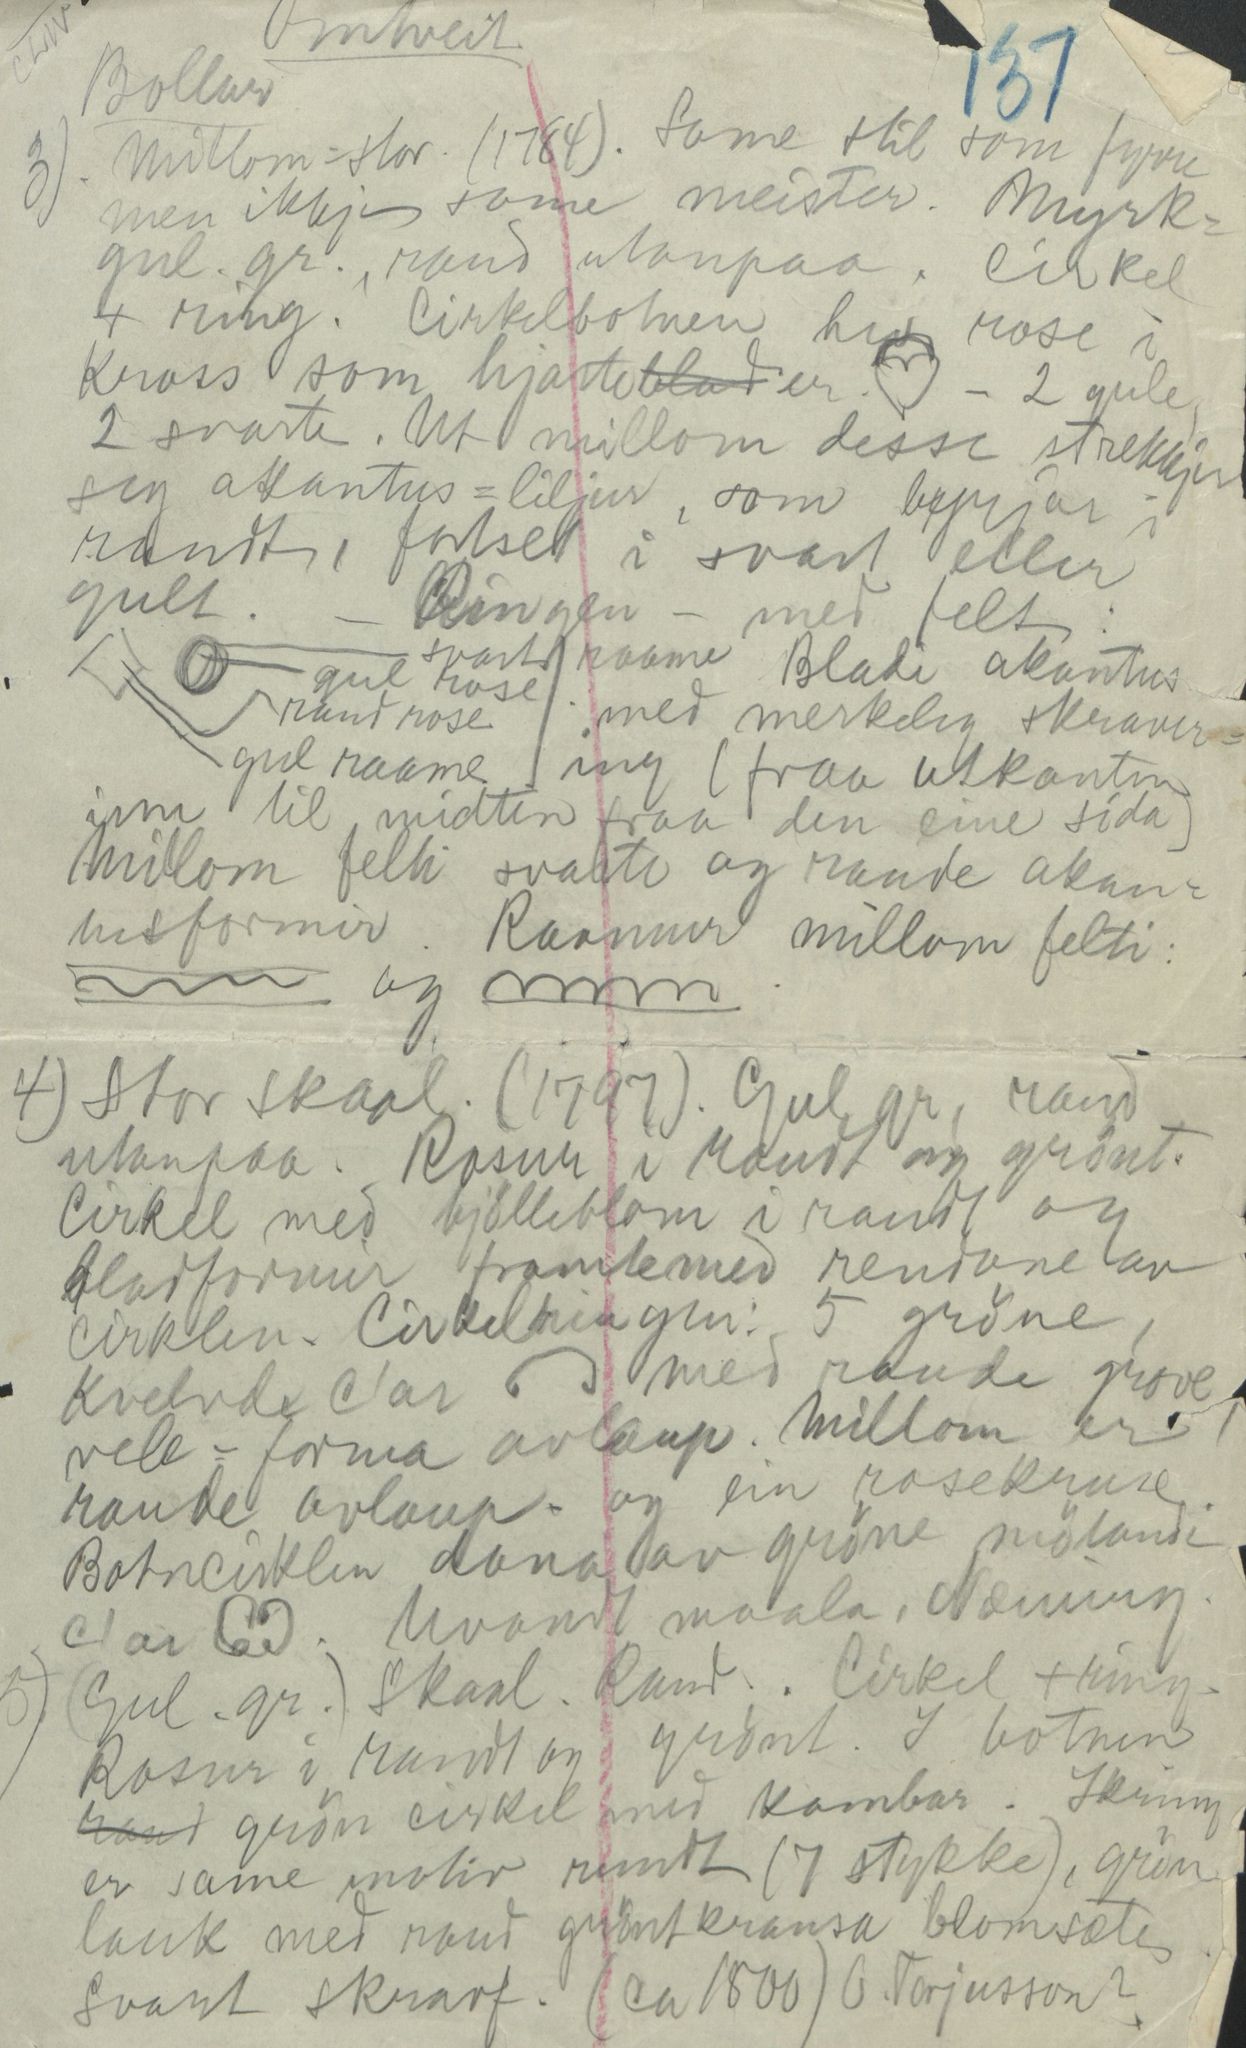 Omtveit
137
Bollar
3). Millom=stor. (1784). Same stil som fyrre
men ikkje same meister. Myrk=
gul. gr., raud utanpaa. Cirkel
+ ring. Cirkelbotnen har rose i
kross som hjarteblader. – 2 gule,
2 svarte. Ut millom desse strekkjer
seg akantus=liljur, som byrjar i
raudt, fortset i svart eller
gult. – Ringen – med felt:
svart raame Bladi akantus
gul rose
raud rose med merkeleg skraver=
gul raame ing (fraa utkanten
inn til midten fraa den eine sida)
Millom felti svarte og raude akan=
tusformer. Raamur millom felti:
og
4) Stor skaal. (1797). Gul gr, raud
utanpaa. Rosur i raudt og grönt.
Cirkel med bjölleblom i raudt og
bladformer framlemed rendane av
cirklen. Cirkelringen: 5 gröne,
kvelvde C'ar med raude grove
rele=forma avlaup. Millom er
raude avlaup. og ein rosekruse.
Botncirklen dana av gröne mötande
C'ar. Uvandt maala,
5) (Gul. gr.) Skaal. Raud.. Cirkel + ring.
Rosur i raudt og grönt. I botnen
raud grön cirkel med kambar. Ikring
er same motiv rundt (7 stykke), grön
lauk med raud gröntkransa blomsæte.
Svart skrav. (ca 1800) O. Terjusson?